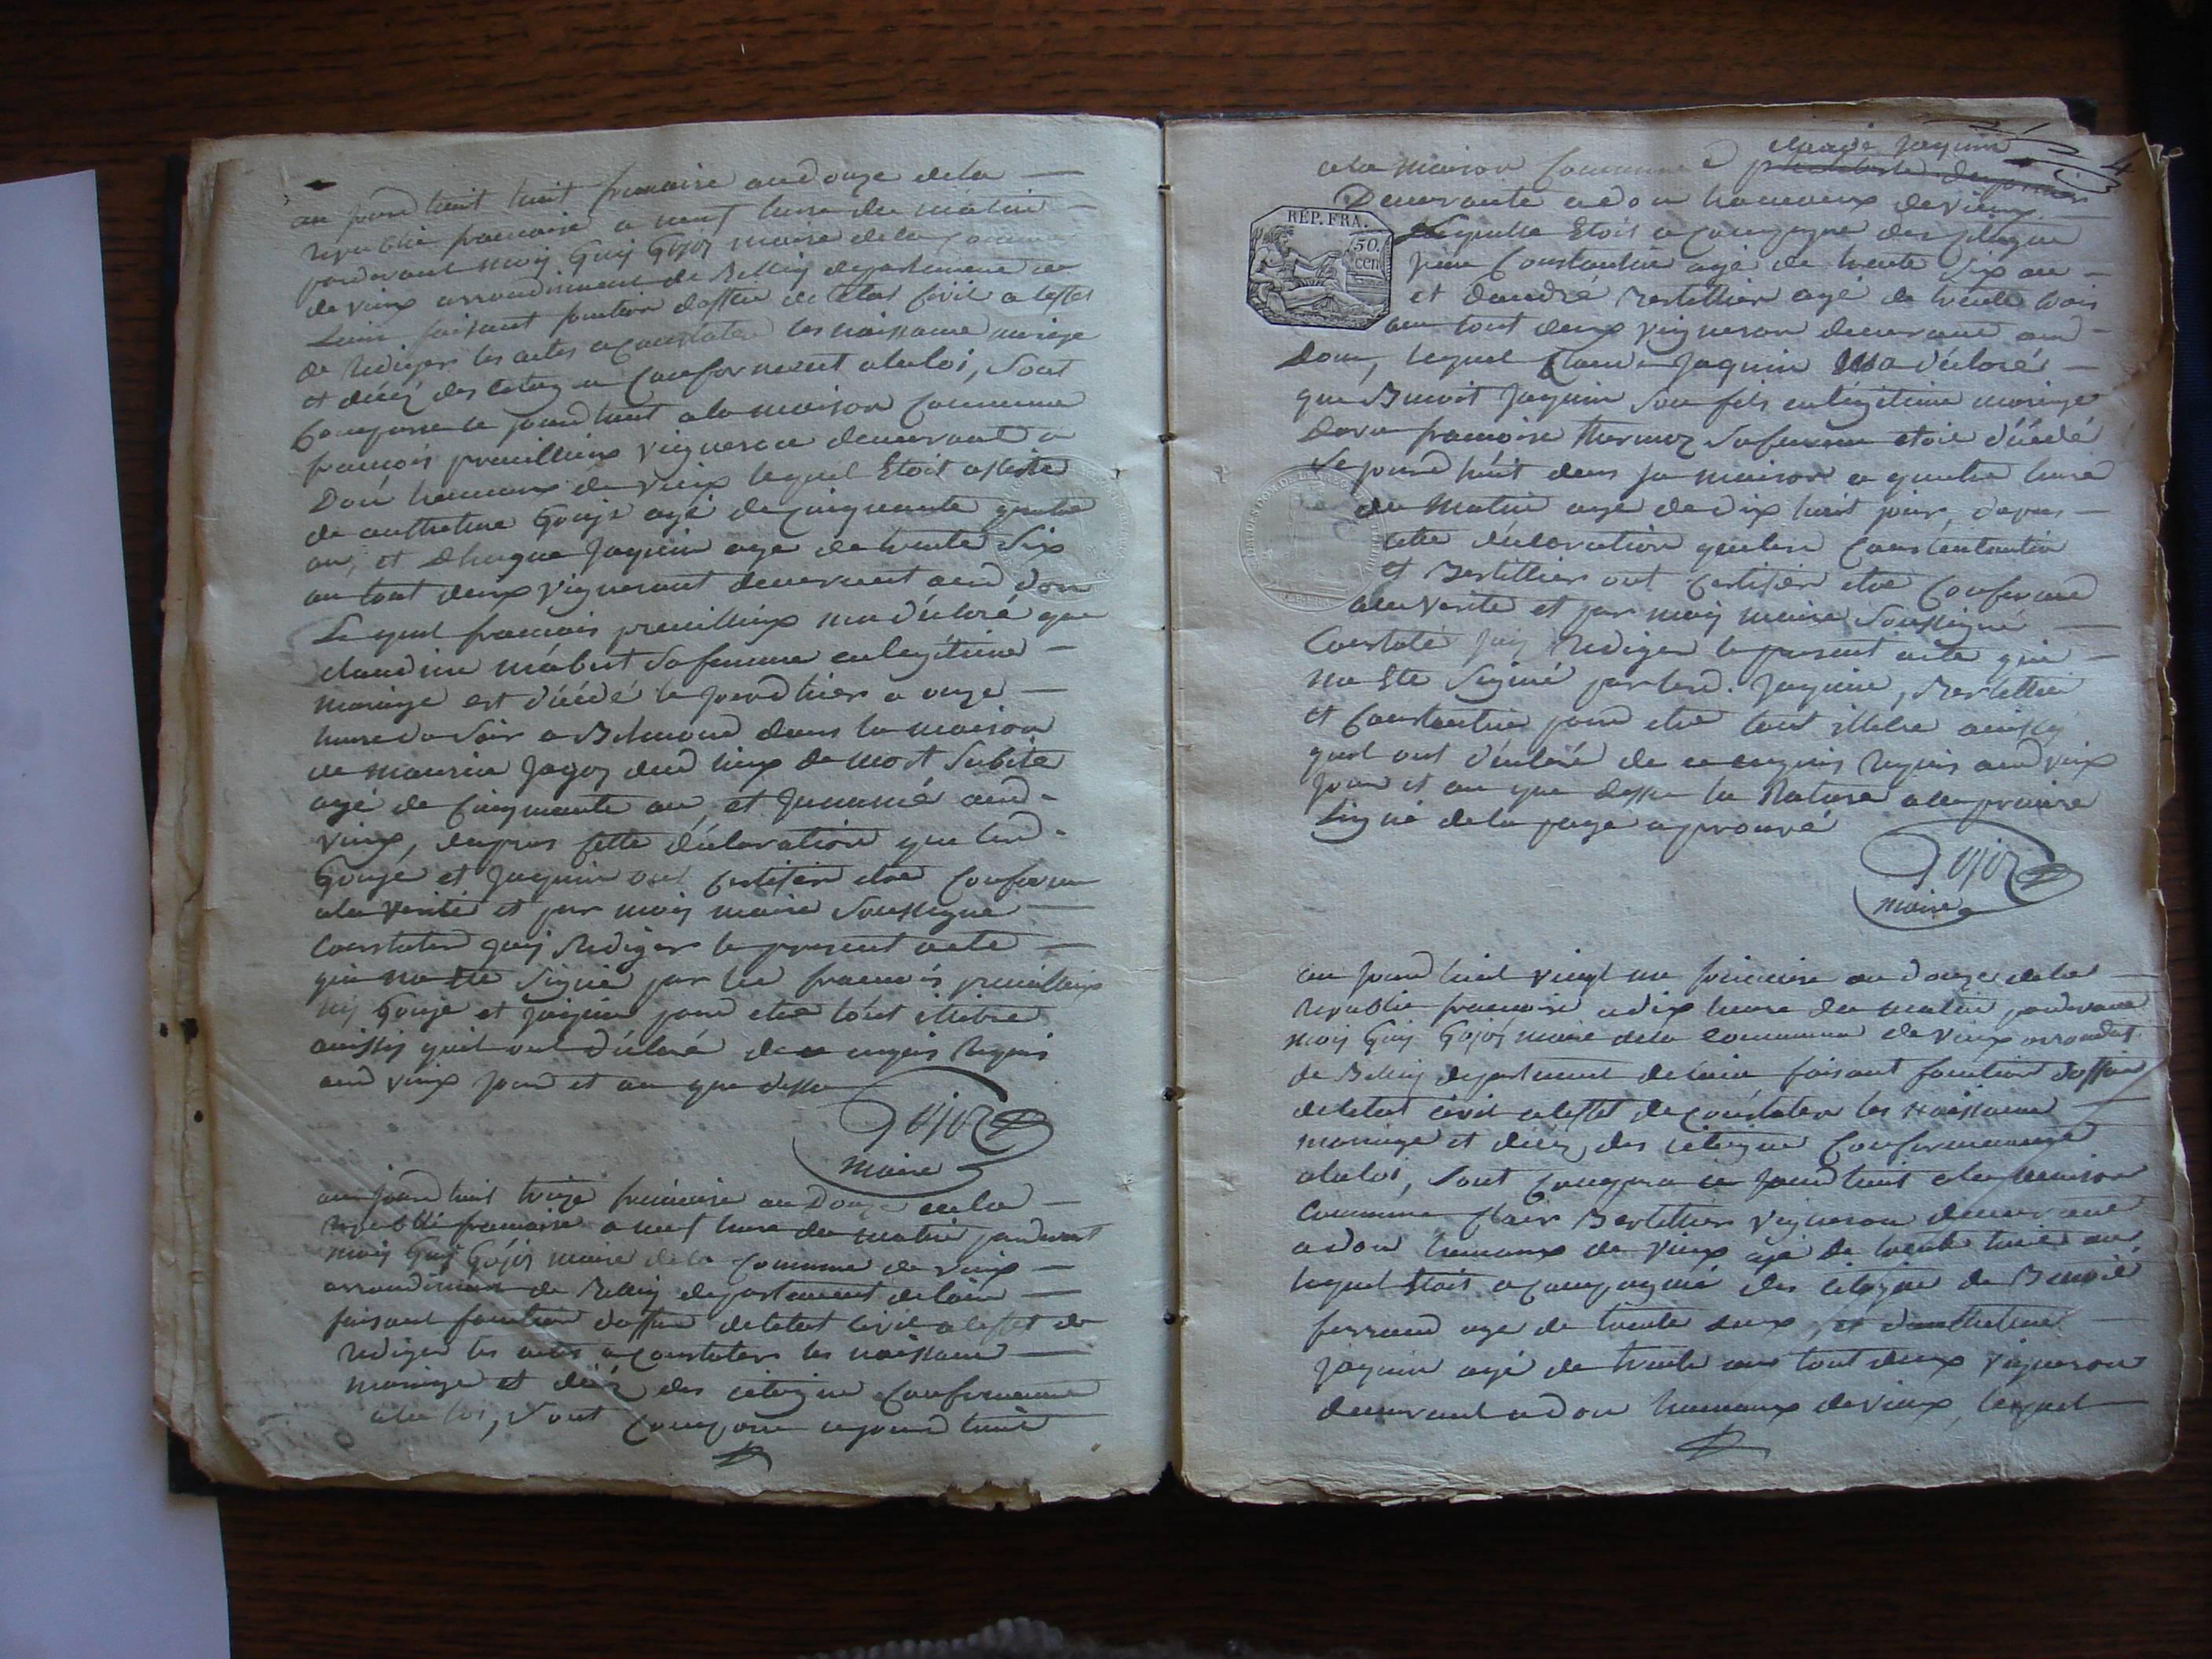 au jourd huit huit frimaire and douze dela
republie francaise a neuf heure du matin
pardevant moiy Guy Gojoz maire dela commune
de vieux arrondisment de Belley departement de
Lain faisant fonction doffice de letat Civil a leffet
de Rediger les actes a Constater les naissance mariage
et décéz des Citoyen Conformement alaloi, sont
Comparu ce jourd huit ala maison Commune
francois preuillieux vigneron demeurant a
Don hameaux de vieux lequel Etoit assiste
de anthelme Gouje agé de Cinquante quatre
an, et Jaquin age de trente six
an tout deux vigneront demeurant aud don
Le quel francois preuillieux ma déclaré que
Claudine mabut sa femme en legitime
mariage est décédé le jourd hier a onze
heure du soir a Belmond dans la maison
de maurice Jagoz dud lieux de mort Subite
agé de Cinquante an, et Jnnumé aud
vieux, dapres cette déclaration que led
Gouje et Jaquin ont certifier etre Conforme
ala verité et par moiy maire Soussigne
Constater Jaiy Rediger le present acte
qui na ete Signé par led francois preuillieux
ny Gouje et Jaquin pour etre tout illitre
ainssy quil ont déclaré de ce enquis Requis
aud vieux jour et an que dessu
Gojoz
maire
au jourd huit treize frimaire an Douze dela
republi francaise a neuf heure du matin pardevant
moiy Guy Gojoz maire dela Commune de vieux
arrondisment de Belley departement delain
faisant fonction doffice de letat civil a leffet de
Rediger les actes a Constater les naissance
mariage et décéz des citoyen Conformement
ala loi, Sont Comparu cejourd huit
4
claude Jaquin
ala maison Commune
Demeurante a don hameaux de vieux
Lequelle Etoit a Compagne des
Constantin agé de trente Six an
et dandré Bertellier agé de trente trois
an tout deux vigneron demeurant aud
Don, lequel Claude Jaquin ma déclaré
que Benoit Jaquin son fils en légitime mariage
Dava francoise thermoz Safemme etoit décédé
Le jourd huit dans sa maison a quatre heure
du matin age de dix huit jour, dapres
cette déclaration que les Constentantin
et Bertellier ont Certifier etre Conforme
ala verite et par moiy maire Soussigné
Constaté Jaiy Rediger le present acte qui
na Ete Signé par led. Jaquin, Bertellier
et Constantin pour etre tout illitre ainssy
quil ont déclaré de ce enquis Requis aud vieux
Jour et an que dessu la Rature ala premiere
Ligne dela page aprouvé
RÉP. FRA.
50
cen
Gojoz
maire
au jourd huit vingt un frimaire an douze dela
Republie francaise adix heure du matin pardevant
moiy Guy Gojoz maire dela Commune de vieux arrondist
de Belley departement delain faisant fonction doffice
deletat civil aleffet de Constater les Naissance
mariage et décéz des citoyen Conformement
alaloi, Sont Comparu ce jourd huit ala maison
Commune Clair Bertellier vigneron demeurant
adon hameaux de vieux agé de trente huit an
lequel Etoit a Compagnié des citoyen de Benoit
ferrand age de trente deux, et danthelme
jaquin agé de trente ans tout deux vigneron
demeurant adon hameaux devieux, lequel